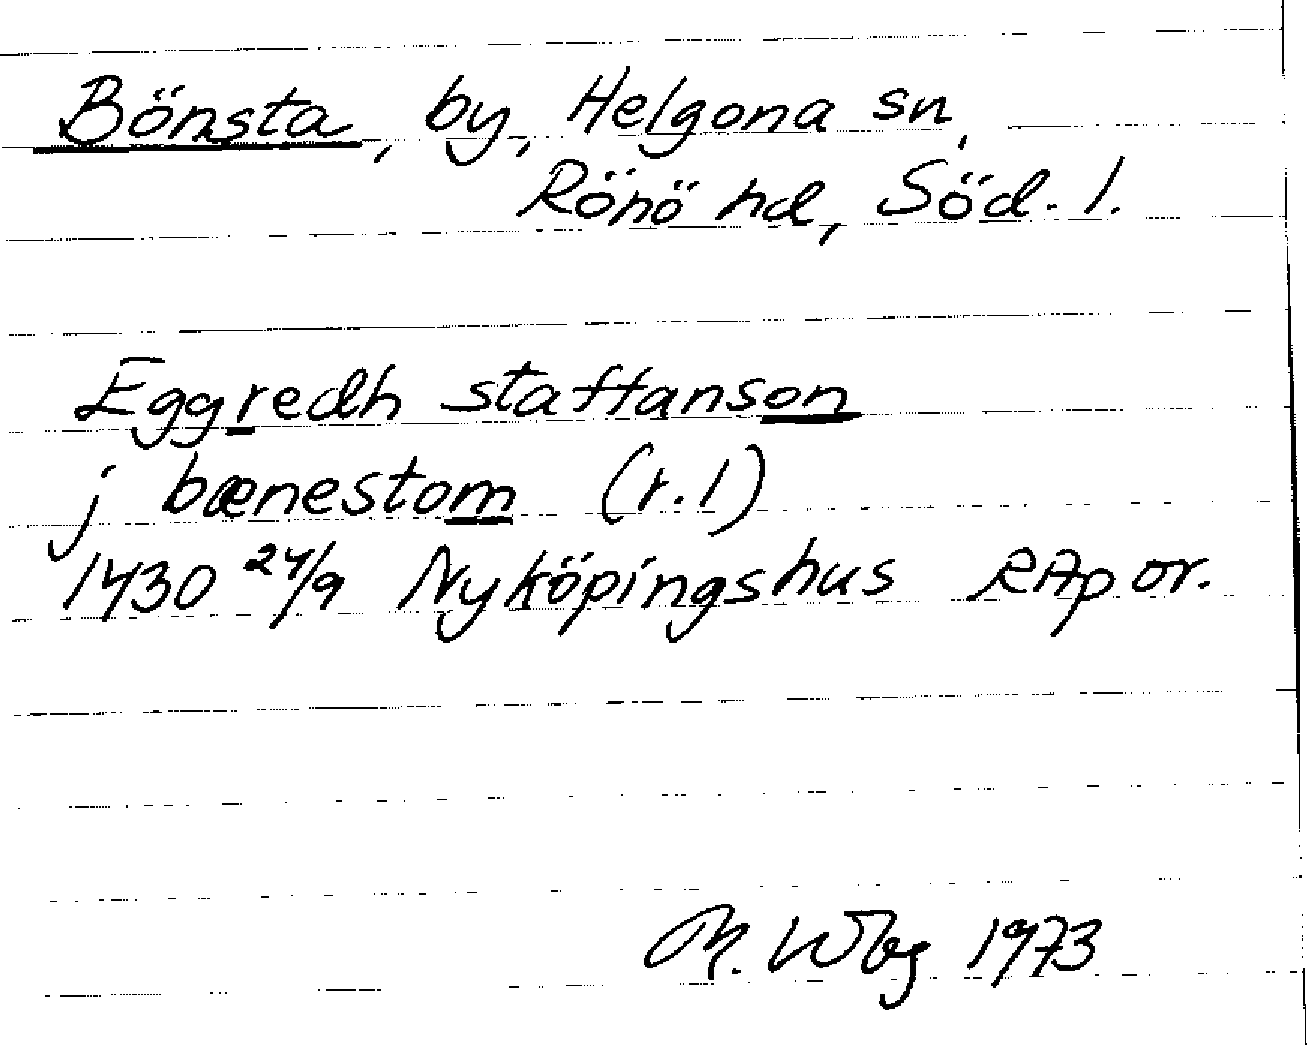 Bönsta, by, Helgona sn,
Rönö hd, Söd. l.
Eggredh staffanson
j bænestom (r. 1)
1430 24/9 Nyköpingshus RAp or.
M. Wbg 1973